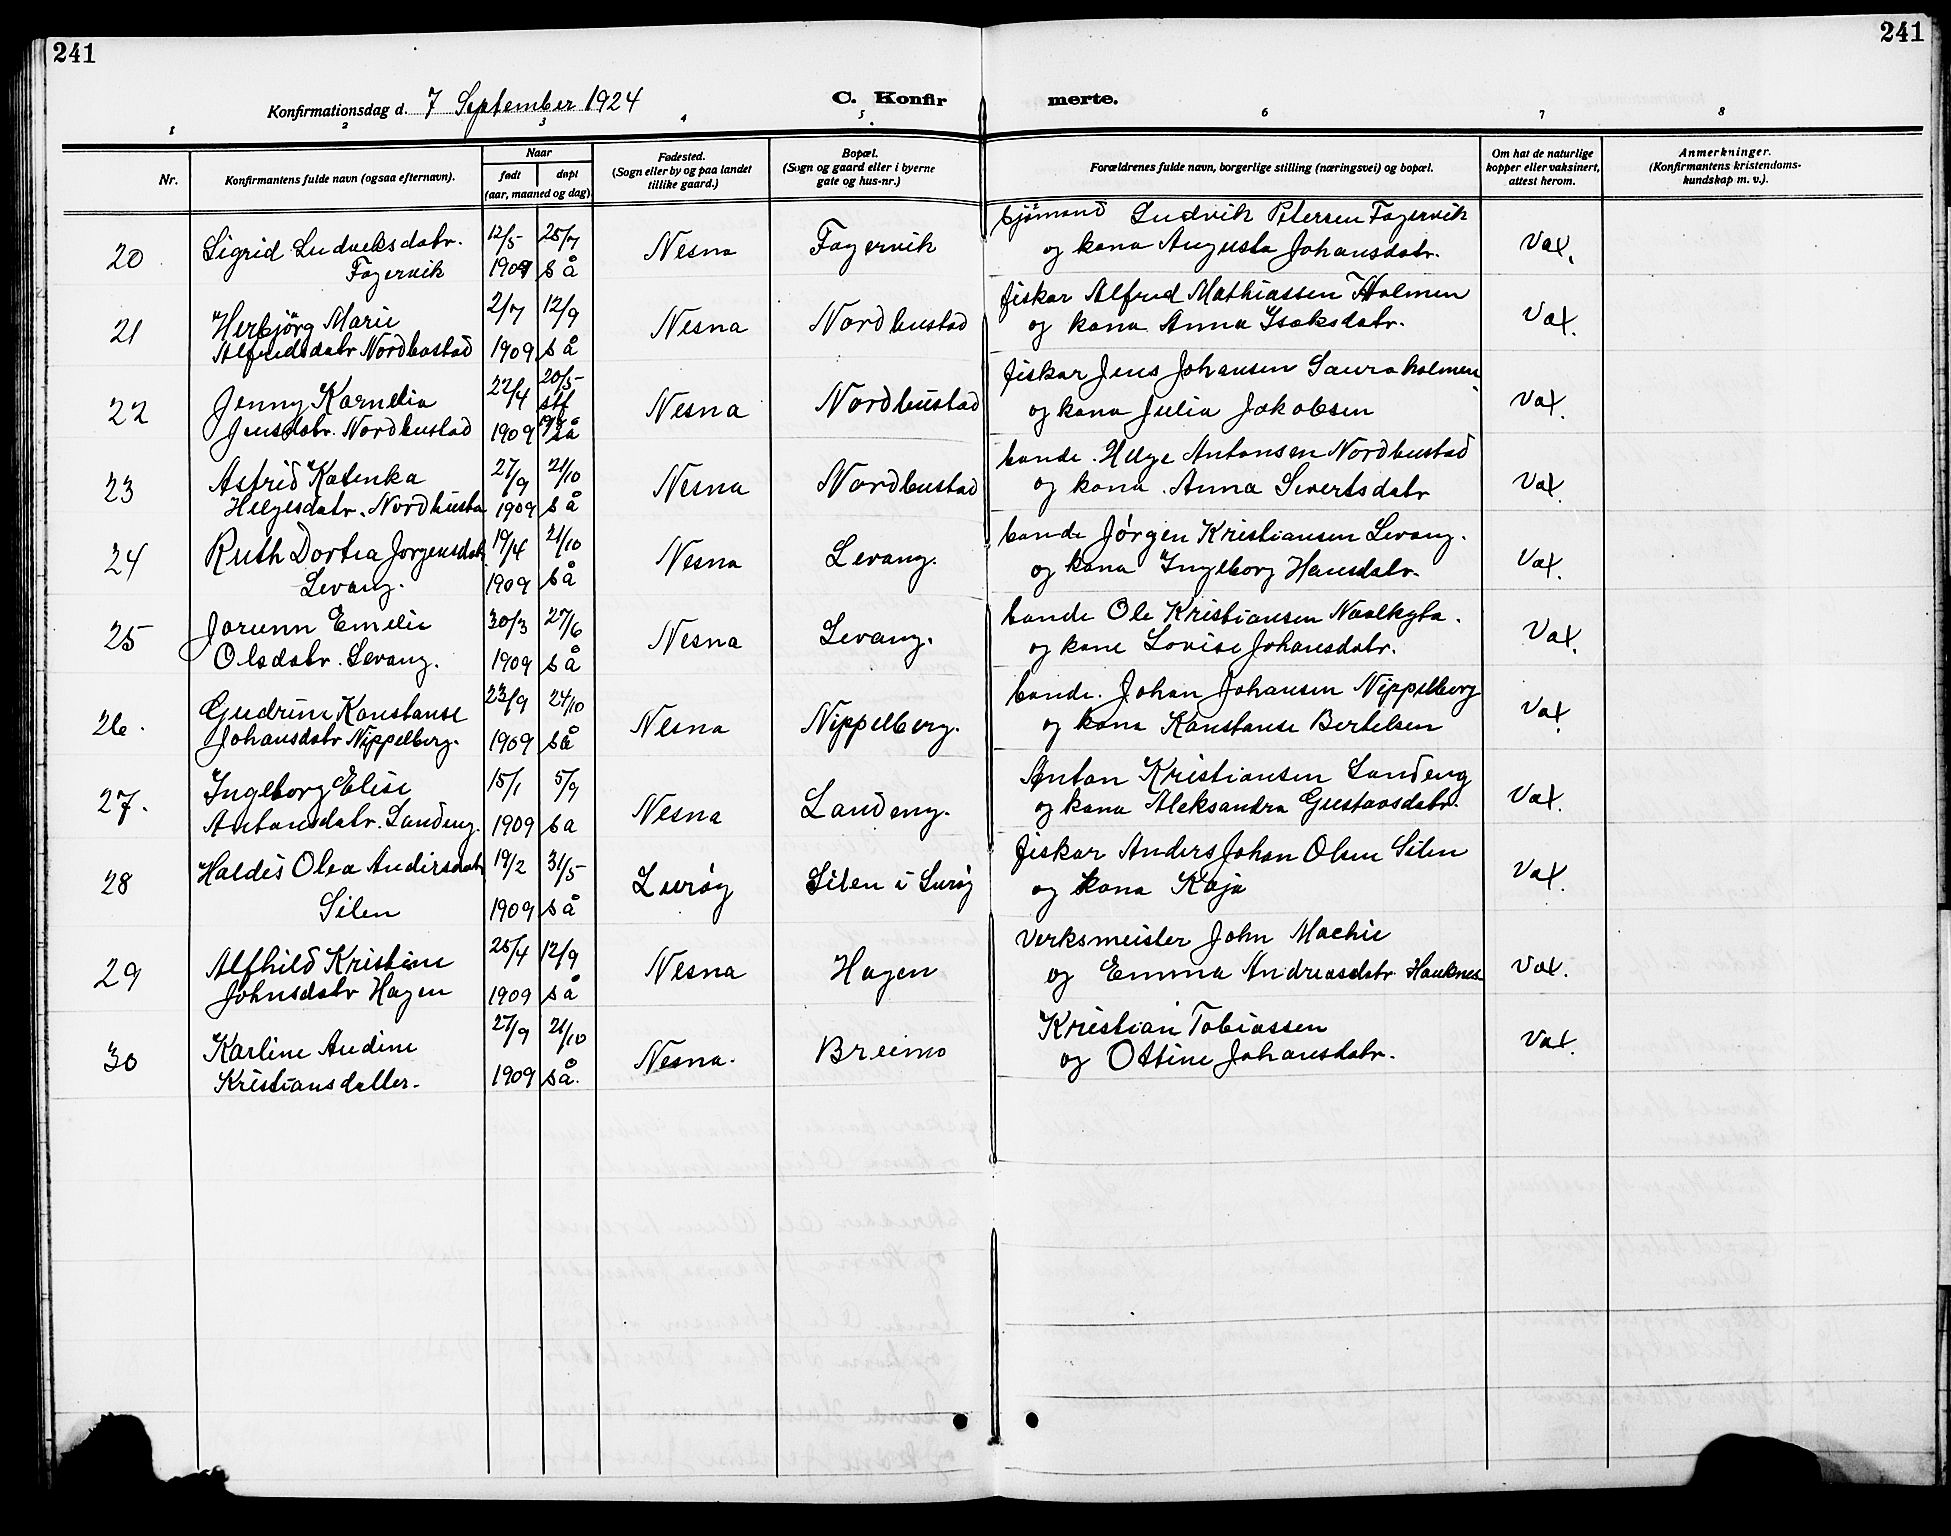 241
241
Konfirmationsdag d. 7 September 1924
C. Konfir merte.
1 2 3 4 5 6 7 8
Nr.
Konfirmantens fulde navn (ogsaa efternavn).
Naar
født døpt
(aar, maaned og dag)
Fødested.
(Sogn eller by og paa landet
tillike gaard.)
Bopæl.
(Sogn og gaard eller i byerne
gate og hus-nr.)
Forældrenes fulde navn, borgerlige stilling (næringsvei) og bopæl.
Om hat de naturlige
kopper eller vaksinert,
attest herom.
Anmerkninger.
(Konfirmantens kristendoms-
kundskap m. v.).
20 Sigrid Ludveksdatr. 12/5- 25/7 Nesna Fagervik Sjømand Ludvik Petersen Fagervik Vax.
Fagervik 1909 så og kona Augusta Johansdatr.
21 Herbjörg Marie 2/7 12/9 Nesna Nordbustad fiskar Alfred Mathiassen Holmen Vax.
Alfredsdatr Nordbustad 1909 så og kona Anna Isaksdatr.
22 Jenny Kornelia 22/4 20/5- Nesna Nordbustad fiskar Jens Johansen Sauraholmen Vax.
Jensdatr. Nordbustad 1909 så og kona Julia Jakobsen
23 Astrid Katinka 27/9 21/10 Nesna Nordbustad bonde. Helge Antonsen Nordbustad Vax.
Helgesdatr. Nordbusta 1909 så og kona. Anna Sivertsdatr
24 Ruth Dortea Jorgensdatr 19/4 21/10 Nesna Levang. bonde Jørgen Kristiansen Levang. Vax.
Levang. 1909 så og kona Ingeborg Hansdatr.
25 Jorunn Emelie 30/3 27/6 Nesna Levang. bonde Ole Kristiansen Naalkyta. Vax.
Olsdatr. Levang. 1909 så og kone Lovise Johansdatr.
26. Gudrun Konstanse 23/9 24/10 Nesna Nippelberg. bonde. Johan Johansen Nippelberg Vax.
Johansdatr Nippelberg. 1909 så og kona Konstanse Bertelsen
27. Ingeborg Elise 15/1 5/9 Nesna Landeng. Anton Kristiansen Landeng Vax.
Antonsdatr. Landeng. 1909 sa og kona Aleksandra Gustavsdatr.
28 Haldis Olea Andersdatr 19/2 31/5- Lurøy Silen i Lurøy fiskar Anders Johan Olsen Silen Vax.
Silen 1909 så og kona Kaja
29 Alfhild Kristine 25/4 12/9 Nesna Hagen Verksmeister John Machie Vax.
Johnsdatr Hagen 1909 så og Emma Andreasdatr Hauknes
30 Karline Andine 27/9 21/10 Nesna. Breimo Kristian Tobiassen Vax.
Kristiansdatter. 1909 så. og Ottine Johansdatr.